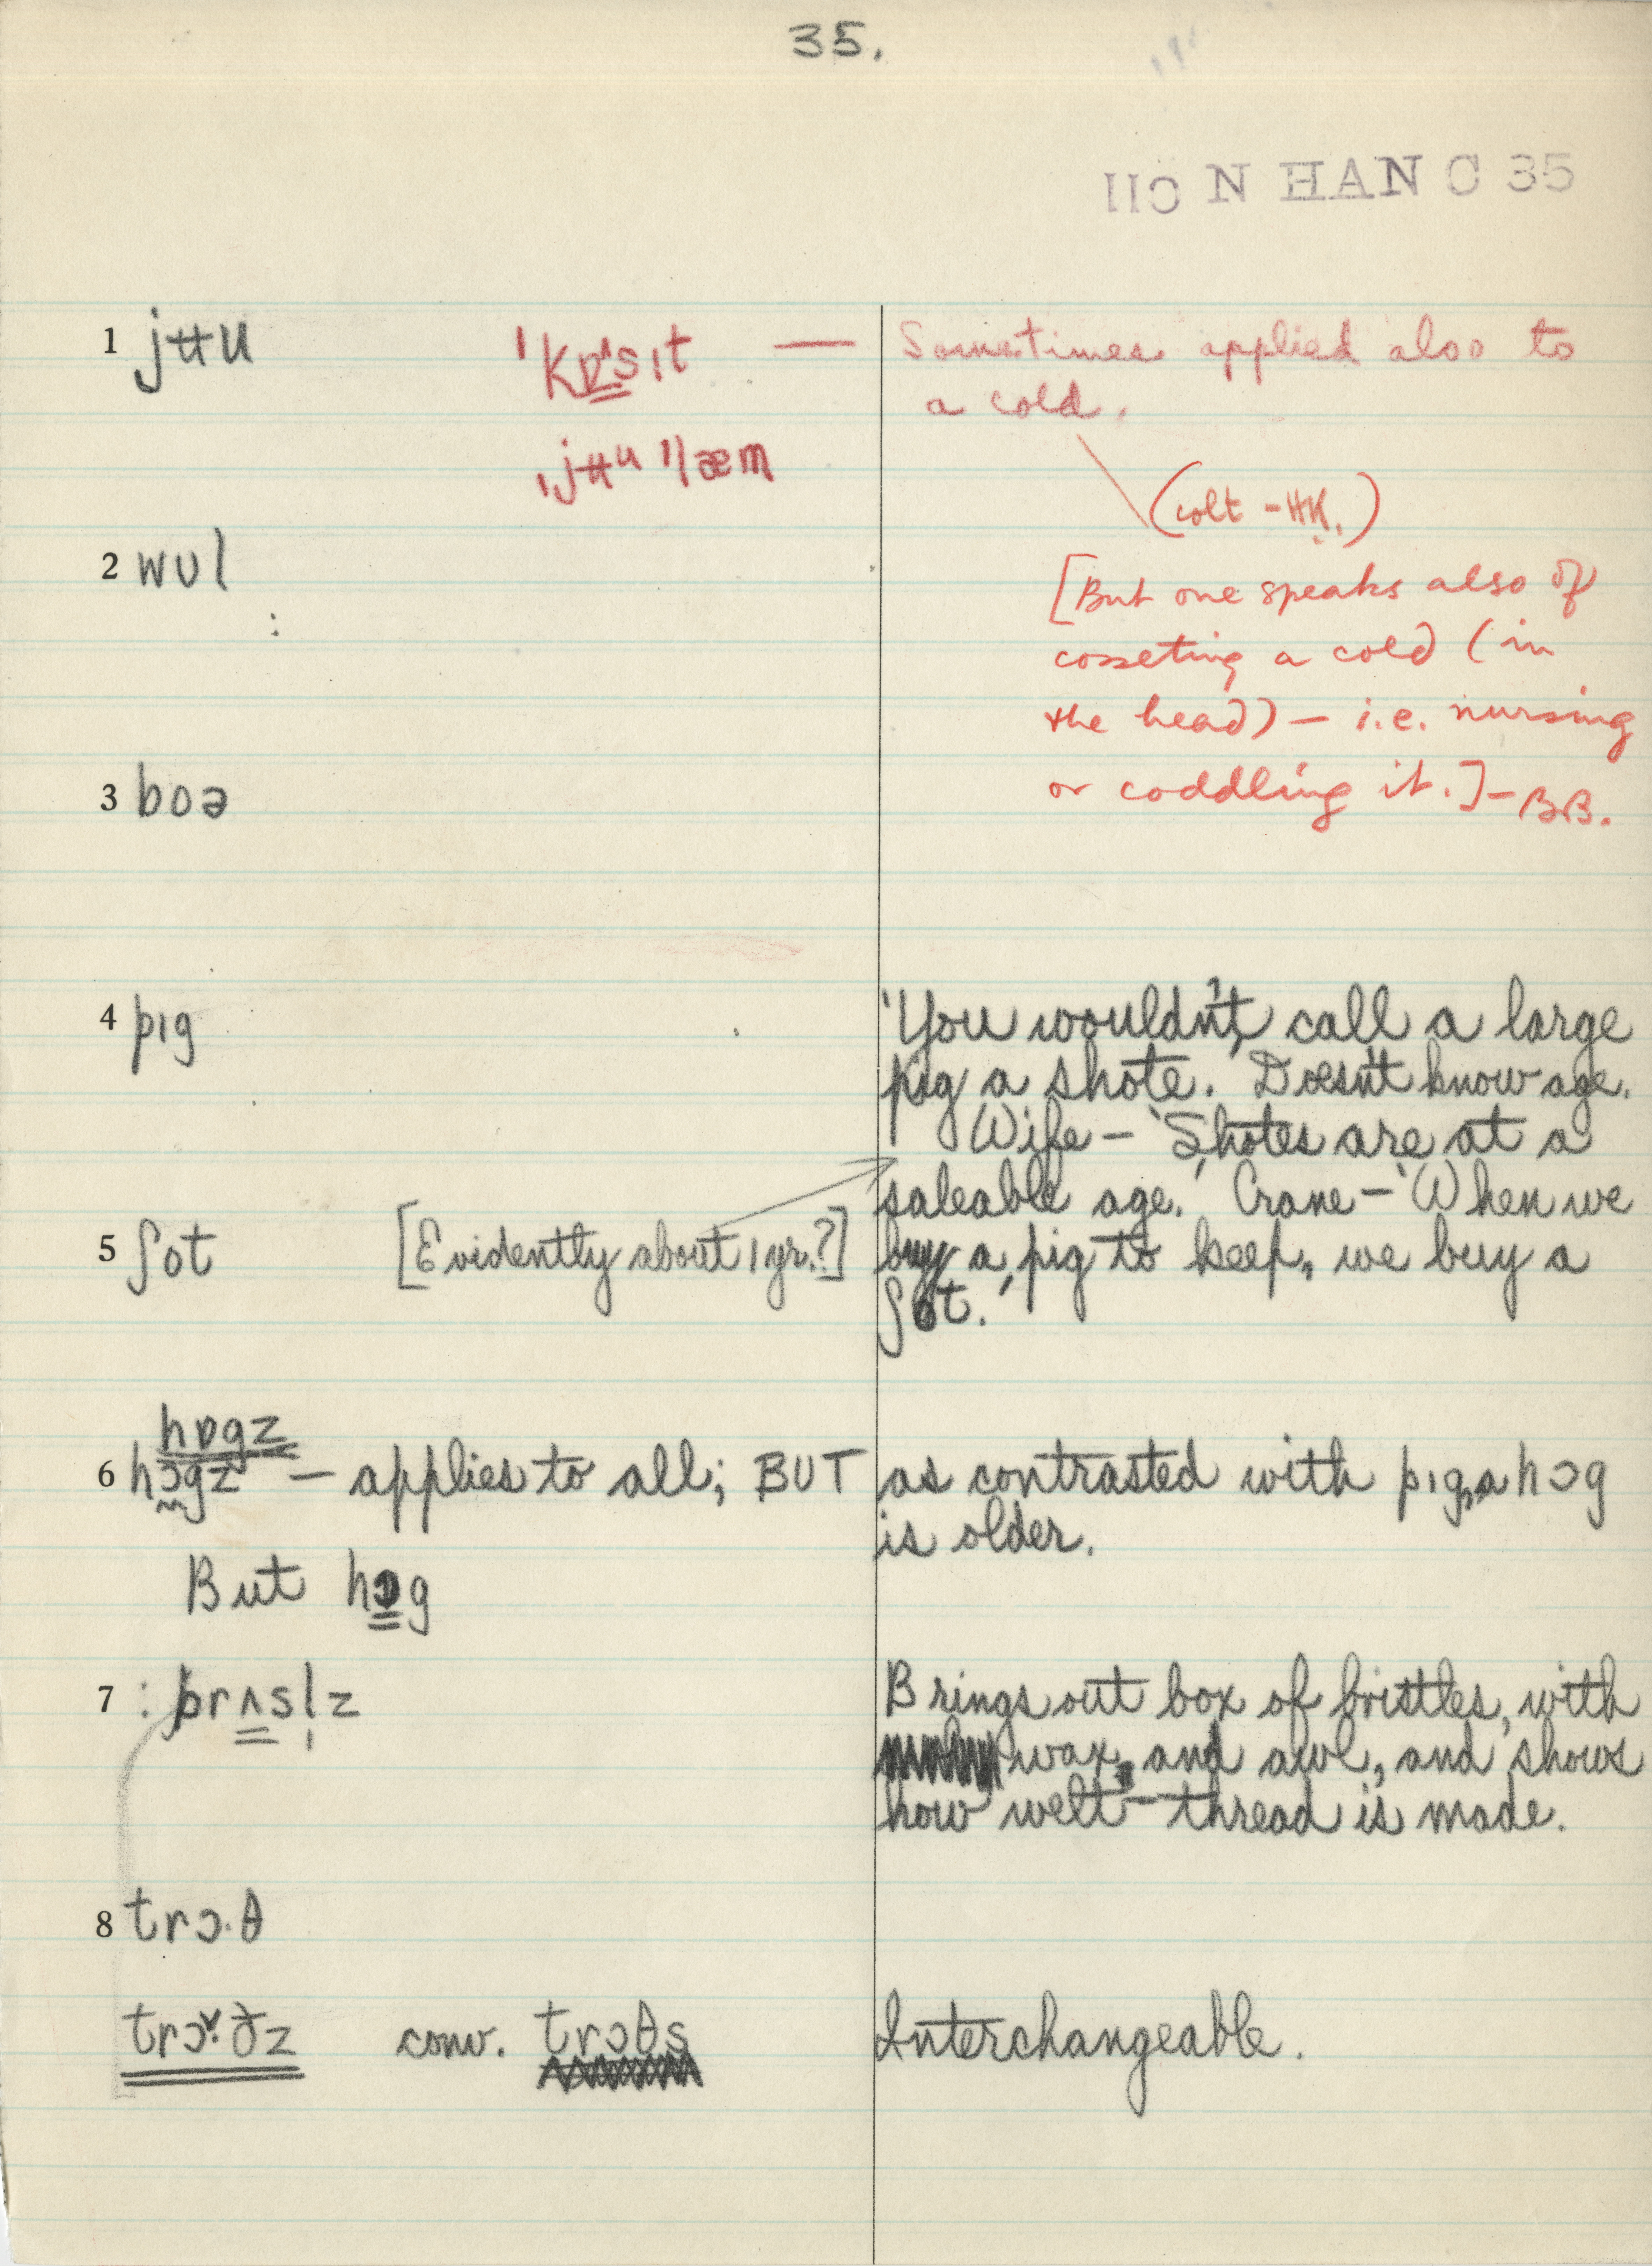 35.
IIC N HAN C 35
1 jʉu ˈkɒ^s̳ɪt — Sometimes applied also to
a cold.
ˌjʉu ˈlæm
(colt - HK.)
2 wʊl
[But one speaks also of
cosseting a cold (in
the head) — i.e. nursing
or coddling it.] - BB.
3 boə
4 pɪg
'You wouldn't, call a large
pig a shote.' Doesn't know age.
Wife — 'Shotes are at a
saleable age.' Crane — 'When we
5 ʃot [Evidently about 1 yr.?] buy a pig to keep, we buy a
ʃot.'
hɒgz
6 hɔgz — applies to all; BUT as contrasted with pɪg, a hɔg
is older.
But hɔg
7 : brʌsl̩z Brings out box of bristles, with
wax, and awl, and shows
how welt-thread is made.
8 trɔ·θ
trɔ˅·ðz conv. trɔθs Interchangeable.